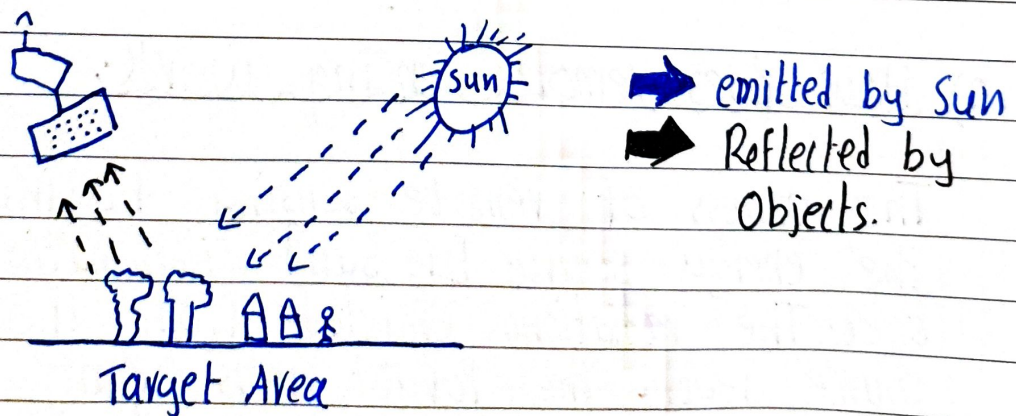 Sun
emitted by Sun
Reflected by
Objects.
Target Area